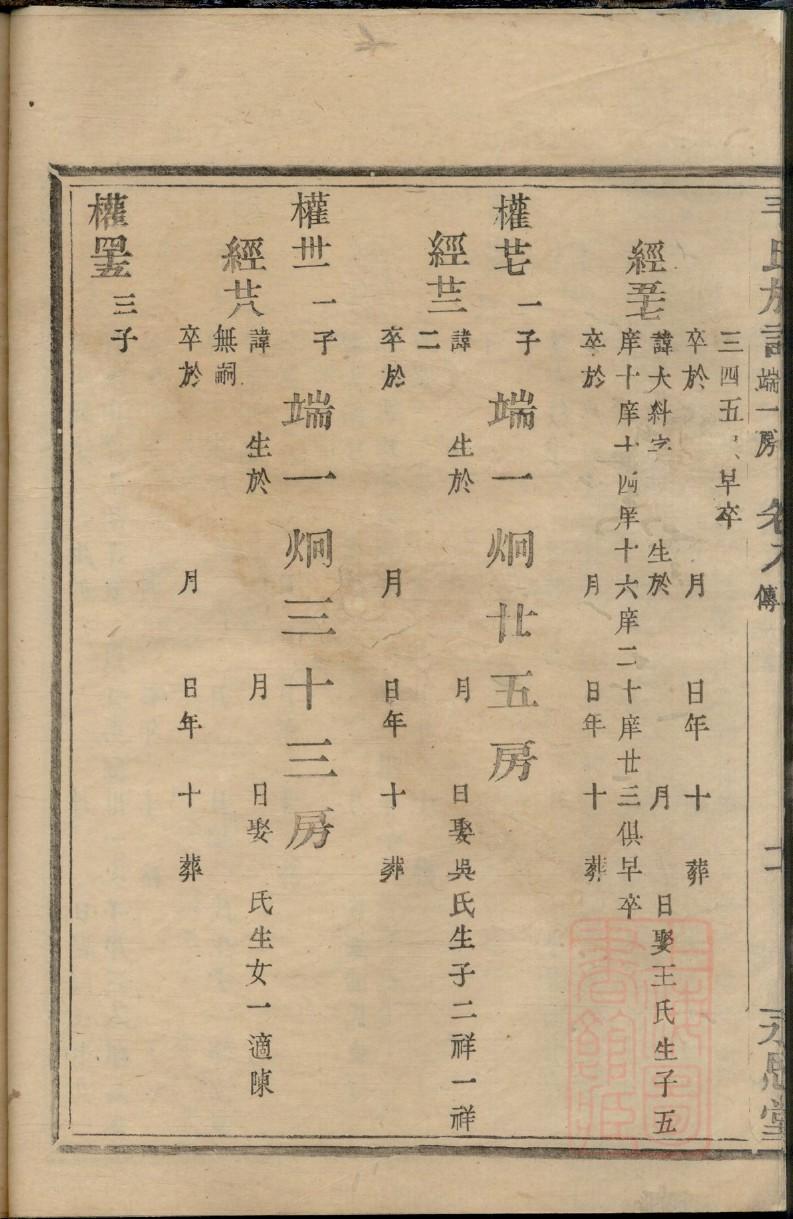 氏族譜 端一房 卷 傳 永思堂
三四五 早卒
卒於 月 日年 十 葬
經 諱大科字 生於 月 日娶王氏生子五
庠十庠十四庠十六庠二十庠廿三俱早卒
卒於 月 日年 十 葬
權 一子 端一炯廿五房
經 諱 生於 月 日娶吳氏生子二祥一祥
二
卒於 月 日年 十 葬
權卅一 一子 端一炯三十三房
經 諱 生於 月 日娶 氏生女一適陳
無嗣
卒於 月 日年 十 葬
權 三子